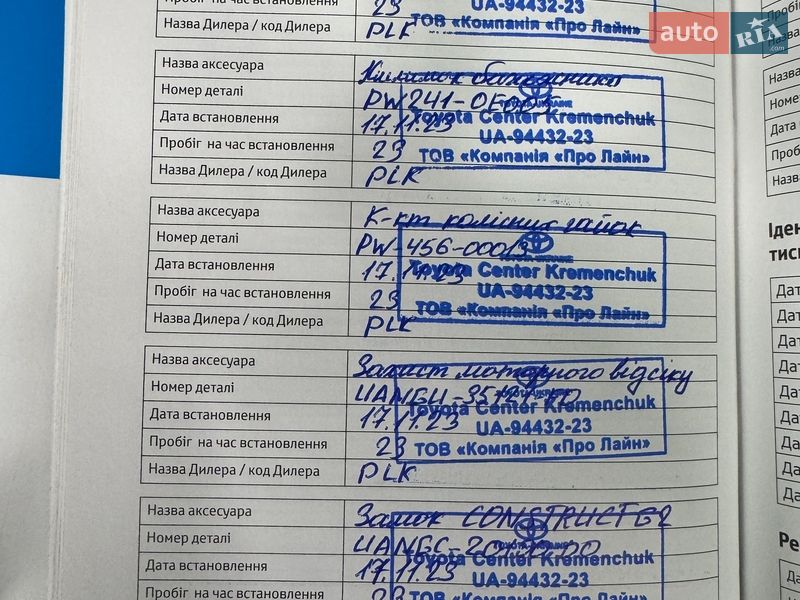 Пробіг на час встановлення 23
UA-94432-23
Назва Дилера / код Дилера PLK
ТОВ «Компанія «Про Лайн»
auto RIA .com
Назва аксесуара Килимок багажника
Номер деталі PW241-0E
Дата встановлення 17.11.23
Toyota Center Kremenchuk
Пробіг на час встановлення 23
UA-94432-23
ТОВ «Компанія «Про Лайн»
Назва Дилера / код Дилера PLK
Назва аксесуара К-кт колісних гайок
Номер деталі PW-456-000
Дата встановлення 17.11.23
Toyota Center Kremenchuk
Пробіг на час встановлення 23
UA-94432-23
ТОВ «Компанія «Про Лайн»
Назва Дилера / код Дилера PLK
Назва аксесуара Захист моторного відсіку
Номер деталі
Дата встановлення 17.11.23
Toyota Center Kremenchuk
UA-94432-23
Пробіг на час встановлення 23
ТОВ «Компанія «Про Лайн»
Назва Дилера / код Дилера PLK
Назва аксесуара Замок CONSTRUCT G2
Номер деталі
Дата встановлення 17.11.23
Toyota Center Kremenchuk
UA-94432-23
Пробіг на час встановлення 23
ТОВ «Компанія «Про Лайн»
Назва
Номе
Дата
Проб
Назв
Іден
тисн
Дат
Дат
Дат
Дат
Дат
Дат
Дат
Дат
Да
Ре